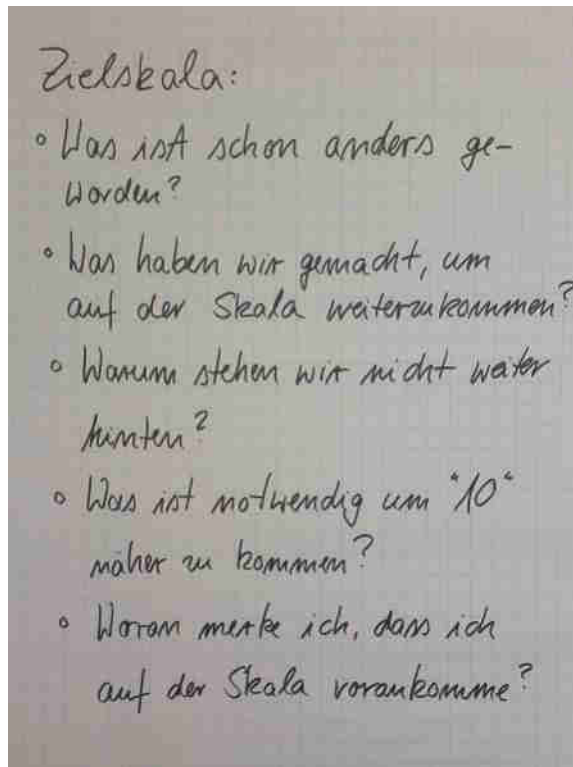 Zielskala:
◦ Was ist schon anders ge-
worden?
◦ Was haben wir gemacht, um
auf der Skala weiterzukommen?
◦ Warum stehen wir nicht weiter
hinten?
◦ Was ist notwendig um "10"
näher zu kommen?
◦ Woran merke ich, dass ich
auf der Skala vorankomme?